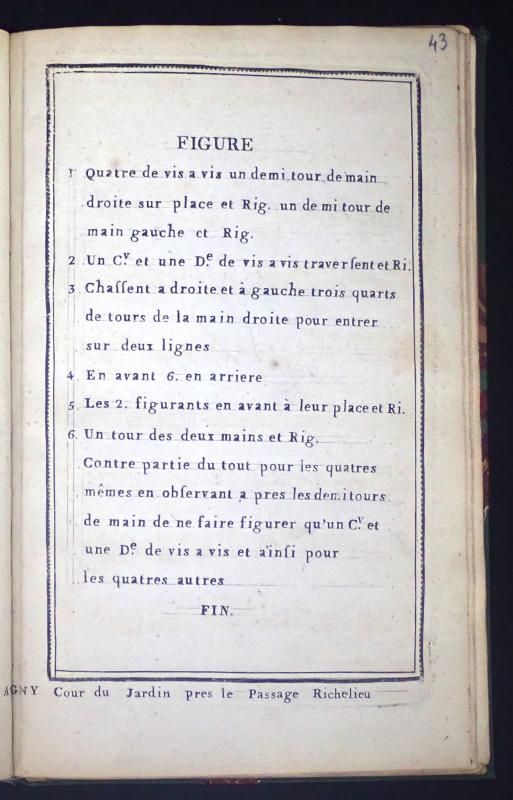 43
FIGURE
1 Quatre de vis a vis un demi tour de main
droite sur place et Rig. un demi tour de
main gauche et Rig.
2 Un C.v et une D.e de vis a vis traverſent et Ri.
3 Chaſſent a droite et à gauche trois quarts
de tours de la main droite pour entrer
sur deux lignes
4 En avant 6. en arriere
5 Les 2. figurants en avant à leur place et Ri.
6. Un tour des deux mains et Rig.
Contre partie du tout pour les quatres
mêmes en obſervant a pres les demi tours
de main de ne faire figurer qu'un C.v et
une D.e de vis a vis et ainſi pour
les quatres autres
FIN.
AGNY Cour du Jardin pres le Passage Richelieu